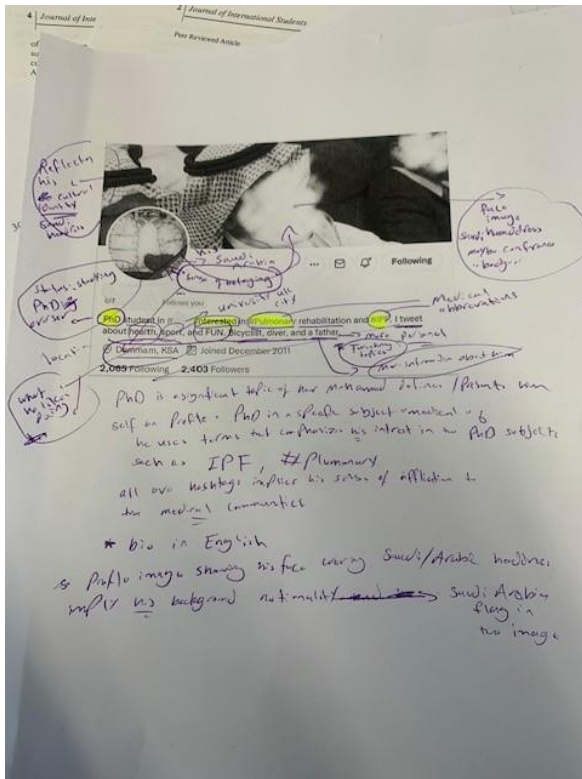 4 | Journal of Inte
2 | Journal of International Students
Peer Reviewed Article
of
su
co
A
Reflects
his
cultural
identity
Saudi
face
image
Saudi headdress
maybe conference
his
Saudi
Arabia
sense of belonging
Following
Follows you
university
city
status
PhD
PhD student in
Interested in #Pulmonary rehabilitation and #IPF, I tweet
about health, sport, and FUN. Bicyclist, diver, and a father.
Medical
abbreviations
more personal
topics
more about him
Location
Dammam, KSA Joined December 2011
2,065 Following 2,403 Followers
what
he
doing
PhD is a significant topic of how Mohammed defines / Presents him
self on Profile. PhD in a specific subject medical
he uses terms that emphasize his interest in his PhD subject
such as IPF, #Plumonary
all hashtags implies his sense of affiliation to
the medical communities
* bio in English
Profile image showing his face wearing Saudi/Arabic
imply his background nationality Saudi Arabia
flag in
the image